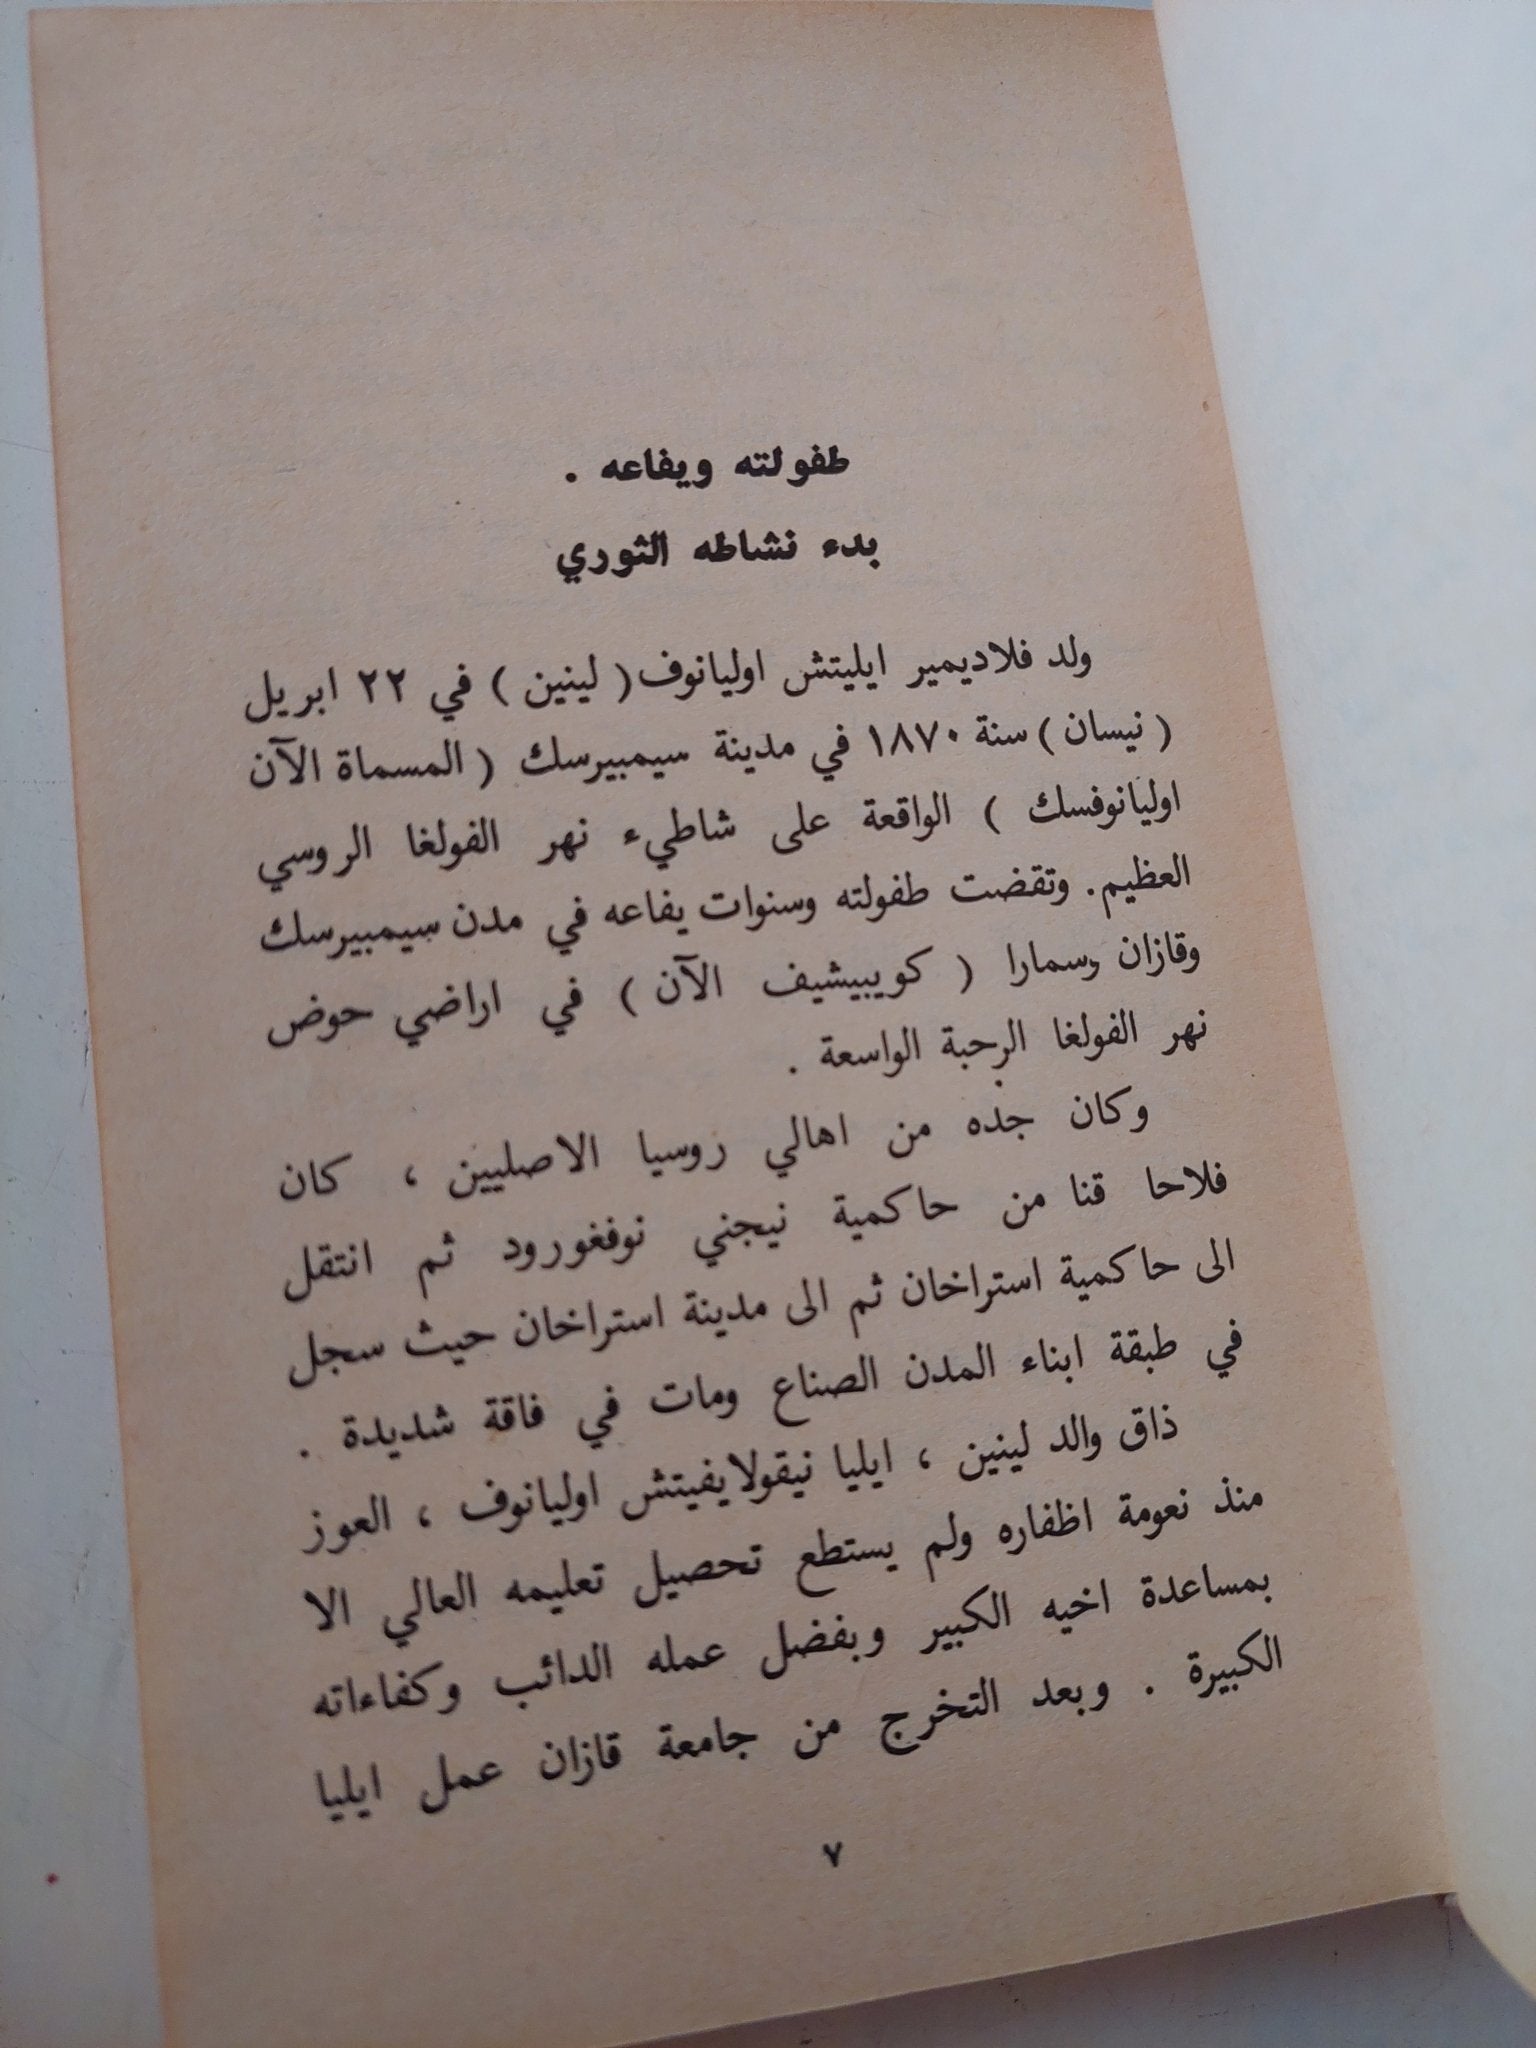 طفولته ويفاعه .
بدء نشاطه الثوري
ولد فلاديمير ايليتش اوليانوف ( لينين ) في ٢٢ ابريل
( نيسان ) سنة ١٨٧٠ في مدينة سيمبيرسك ( المسماة الآن
اوليانوفسك ) الواقعة على شاطيء نهر الفولغا الروسي
العظيم . وتقضت طفولته وسنوات يفاعه في مدن سيمبيرسك
وقازان وسمارا ( كويبيشيف الآن ) في اراضي حوض
نهر الفولغا الرحبة الواسعة .
وكان جده من اهالي روسيا الاصليين ، كان
فلاحا قنا من حاكمية نيجني نوفغورود ثم انتقل
الى حاكمية استراخان ثم الى مدينة استراخان حيث سجل
في طبقة ابناء المدن الصناع ومات في فاقة شديدة .
ذاق والد لينين ، ايليا نيقولايفيتش اوليانوف ، العوز
منذ نعومة اظفاره ولم يستطع تحصيل تعليمه العالي الا
بمساعدة اخيه الكبير وبفضل عمله الدائب وكفاءاته
الكبيرة . وبعد التخرج من جامعة قازان عمل ايليا
٧